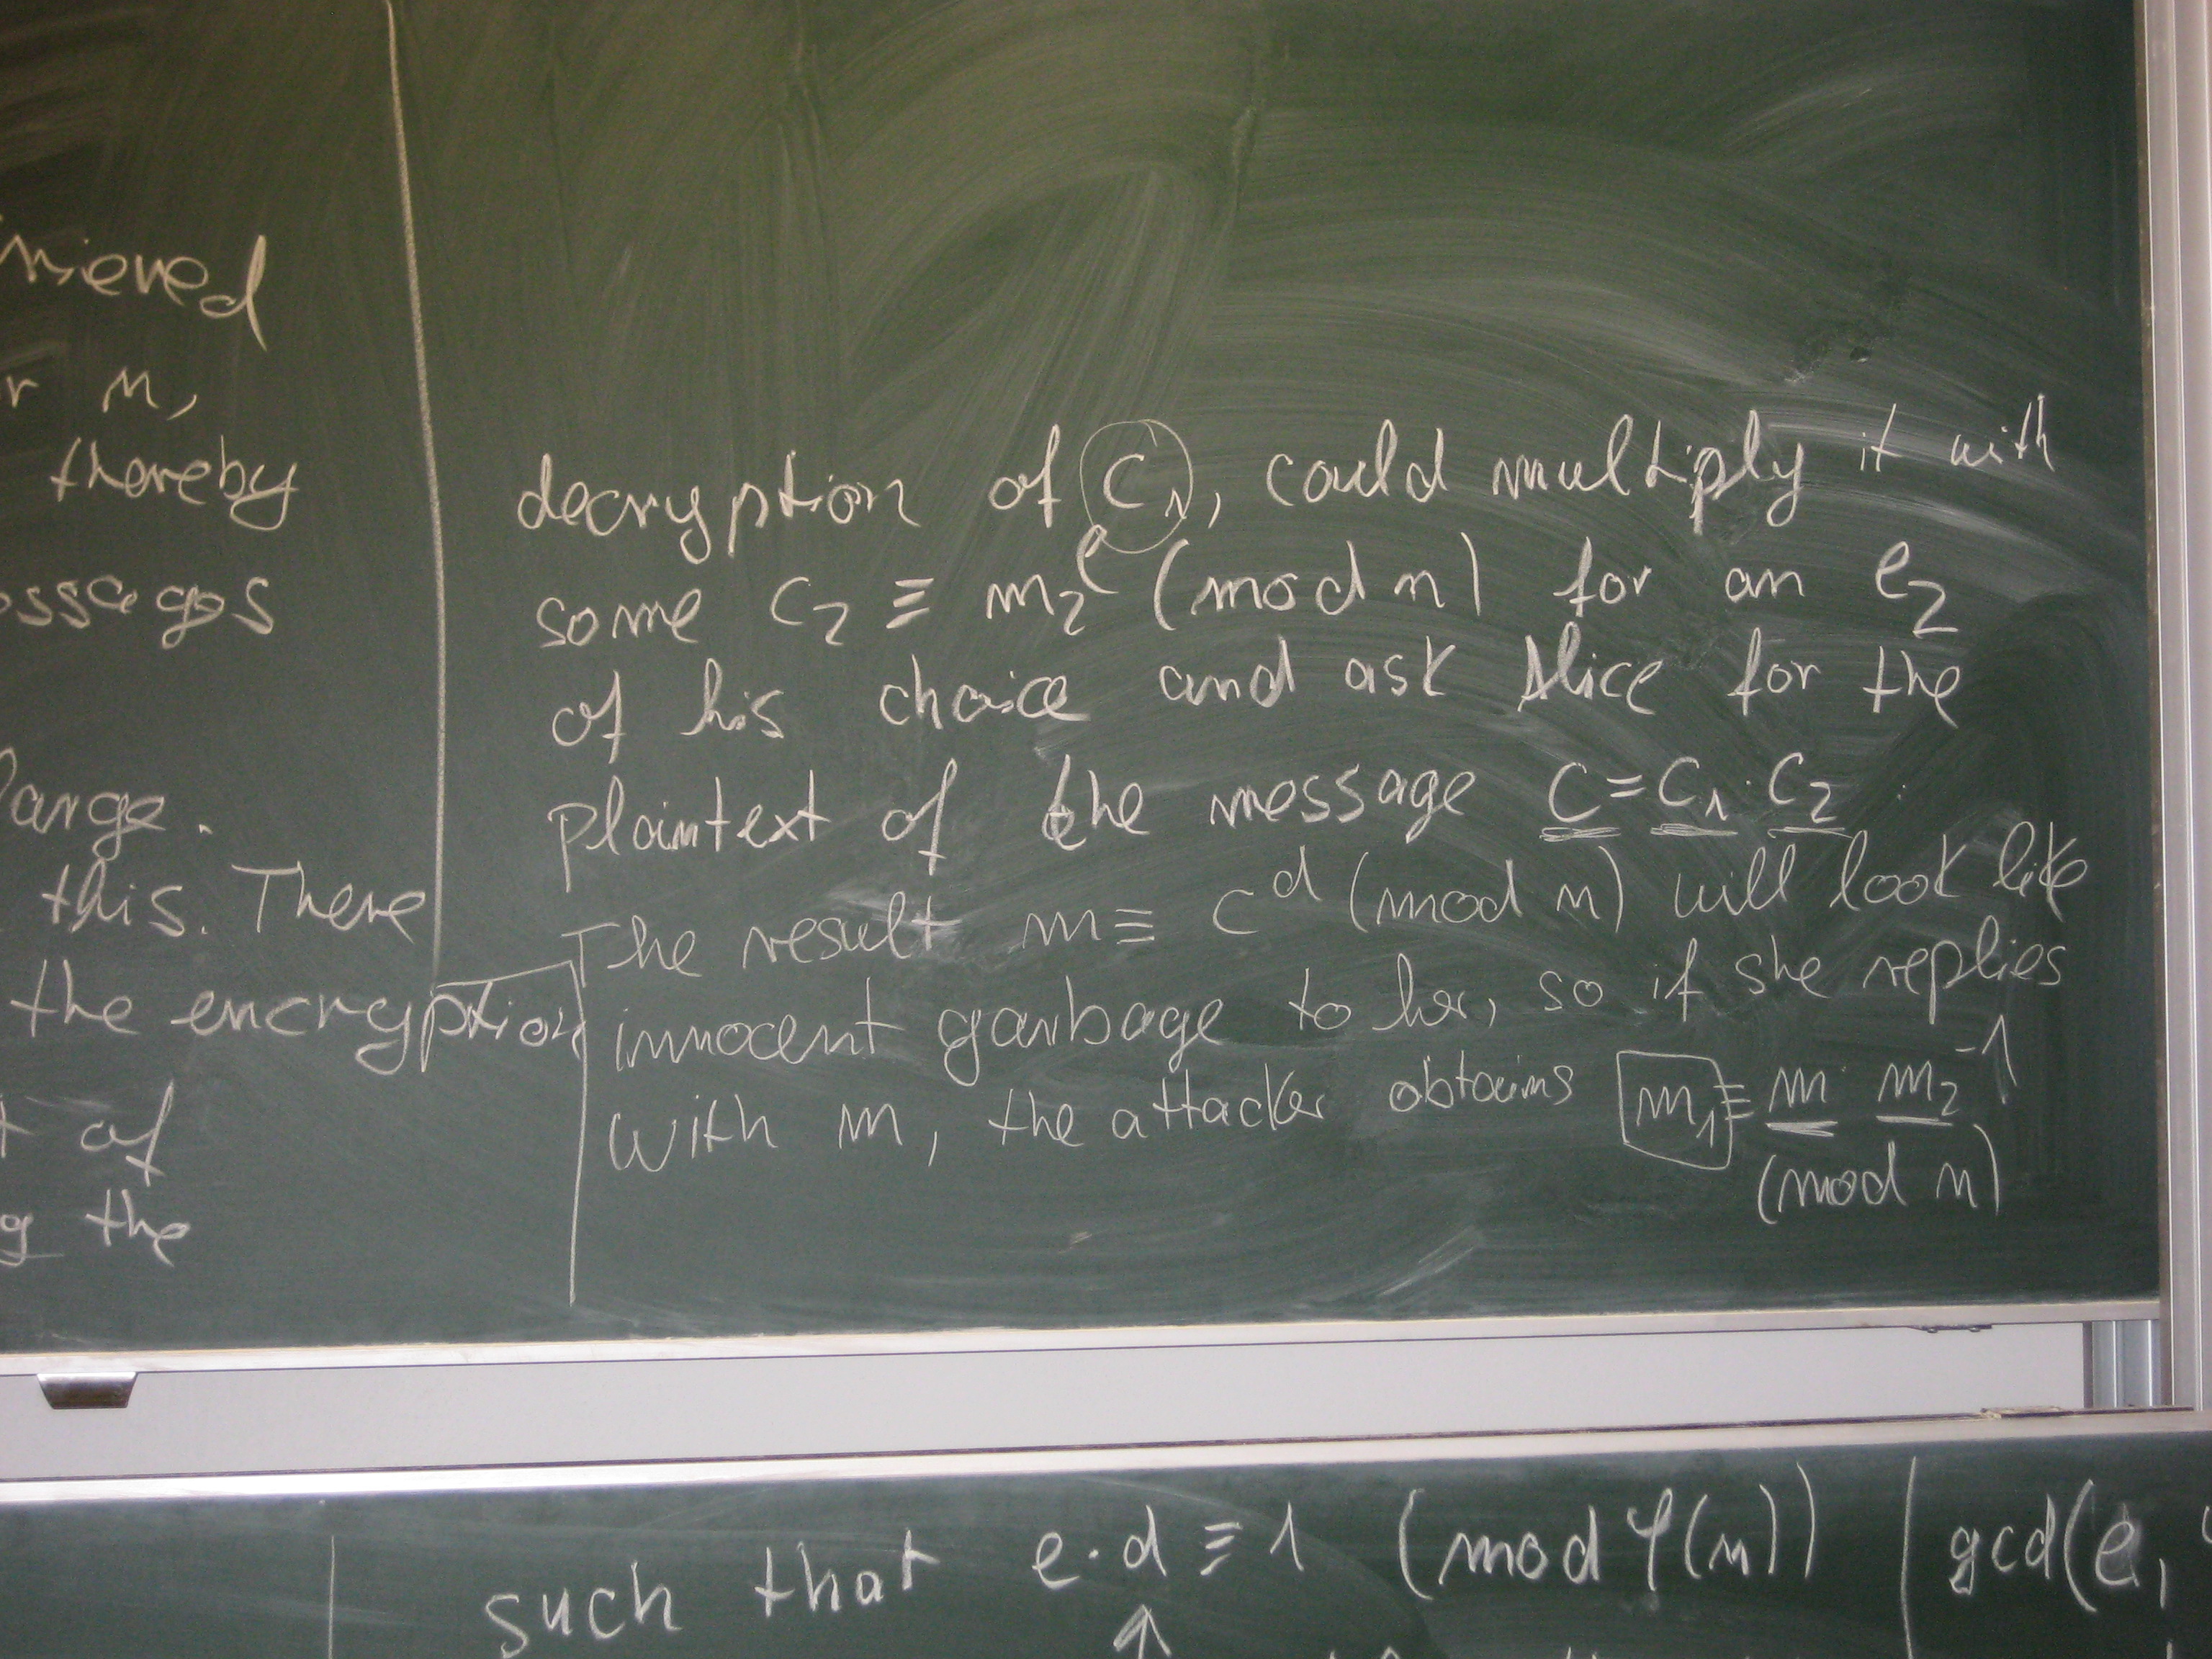 r n,
thereby
large.
this. There
the encryption
of
the
decryption of c₁, could multiply it with
some c₂ ≡ m₂ᵉ (mod n) for an e₂
of his choice and ask Alice for the
plaintext of the message c = c₁ · c₂
The result m ≡ cᵈ (mod n) will look like
innocent garbage to her, so if she replies
with m, the attacker obtains m₁ ≡ m · m₂⁻¹
(mod n)
such that e·d ≡ 1 (mod φ(n)) | gcd(e,